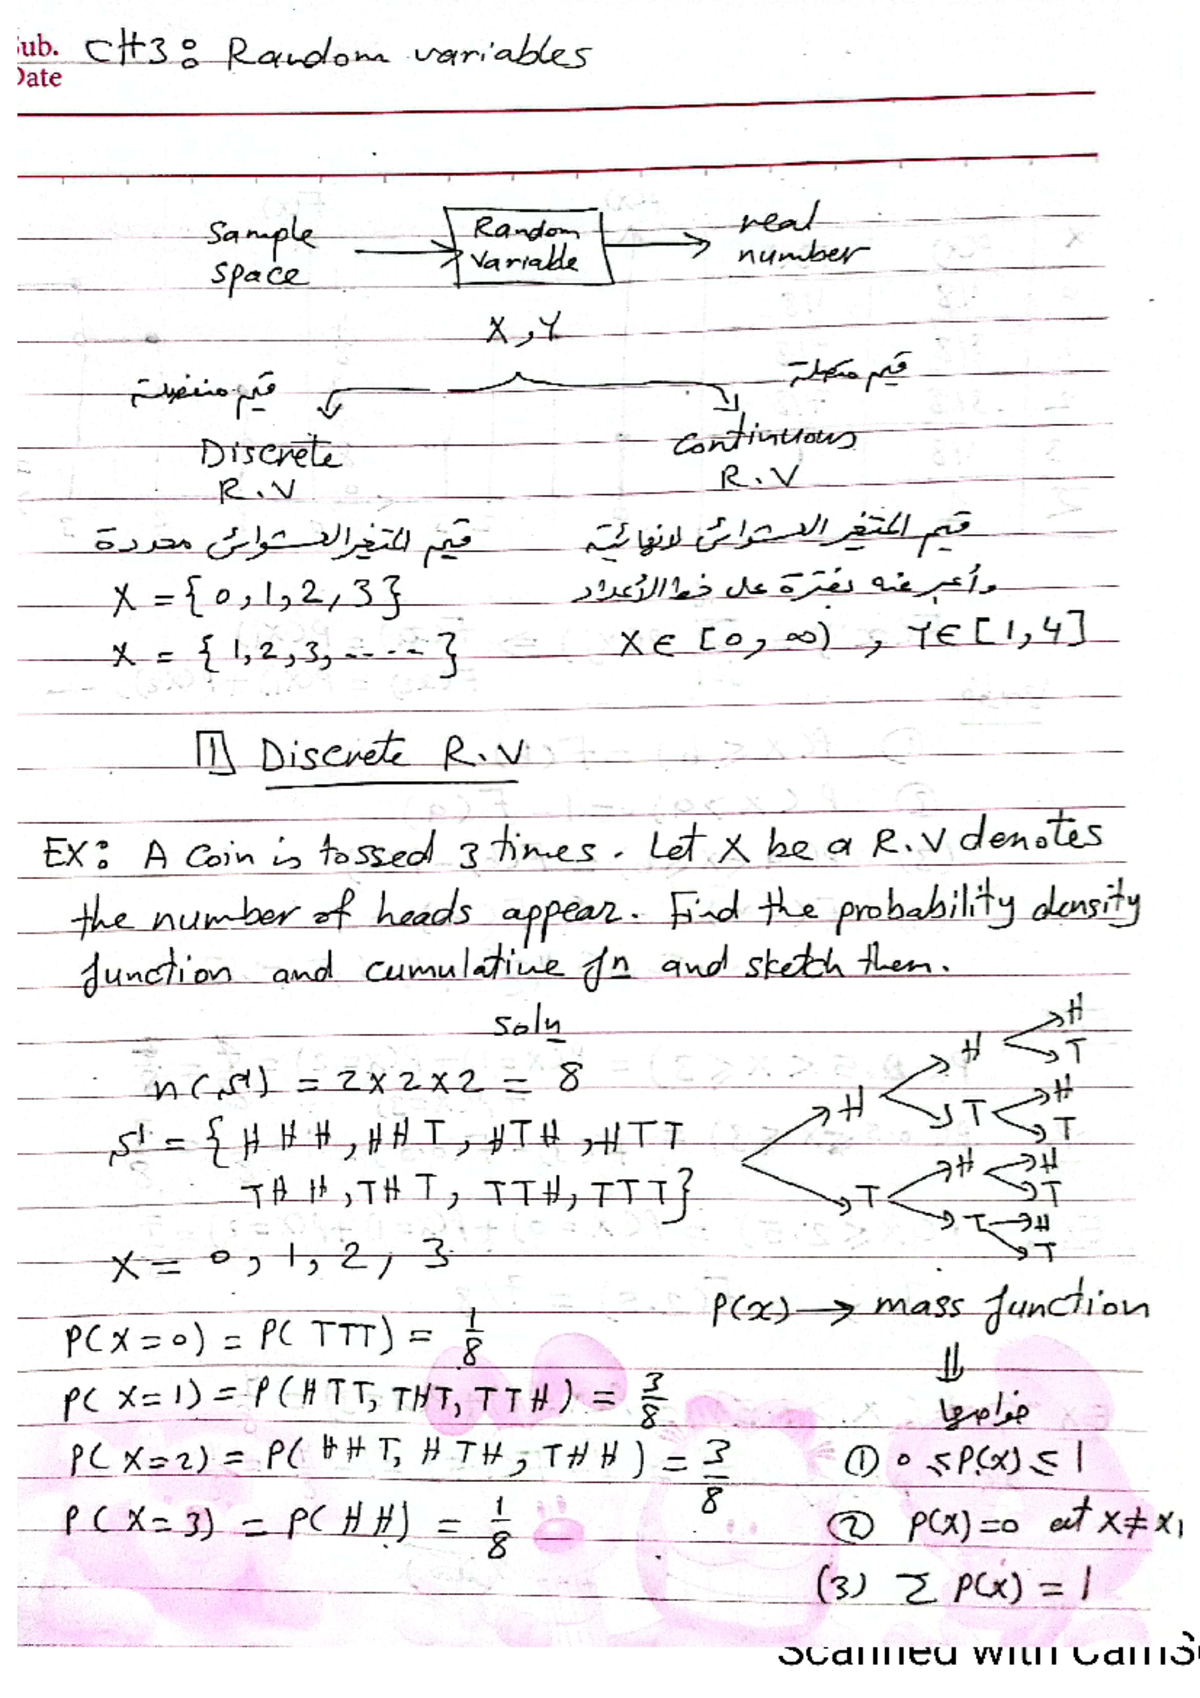 Sub. CH3: Random variables
Date
Sample space
Random Variable
real number
X, Y
قيم منفصلة
قيم متصلة
Discrete R.V
Continuous R.V
قيم المتغير العشوائي محددة
X = {0, 1, 2, 3}
X = {1, 2, 3, .....}
قيم المتغير العشوائي لانهائية
وأعبر عنه بفترة على خط الأعداد
X ∈ [0, ∞) , Y ∈ [1, 4]
1 Discrete R.V
EX: A Coin is tossed 3 times. Let X be a R.V denotes
the number of heads appear. Find the probability density
function and cumulative fn and sketch them.
Soln
n(S) = 2 x 2 x 2 = 8
S = { H H H, H H T, H T H, H T T
T H H, T H T, T T H, T T T }
H T
H T H T
H T H T H T H T
X = 0, 1, 2, 3
P(X=0) = P( TTT) = 1/8
P( X=1) = P(HTT, THT, TTH) = 3/8
P( X=2) = P( HHT, HTH, THH) = 3/8
P( X=3) = P( HH) = 1/8
P(x) → mass function
⇓
خواصها
① 0 ≤ P(x) ≤ 1
② P(x)=0 at X ≠ x1
(3) Σ P(x) = 1
Scanned with CamS